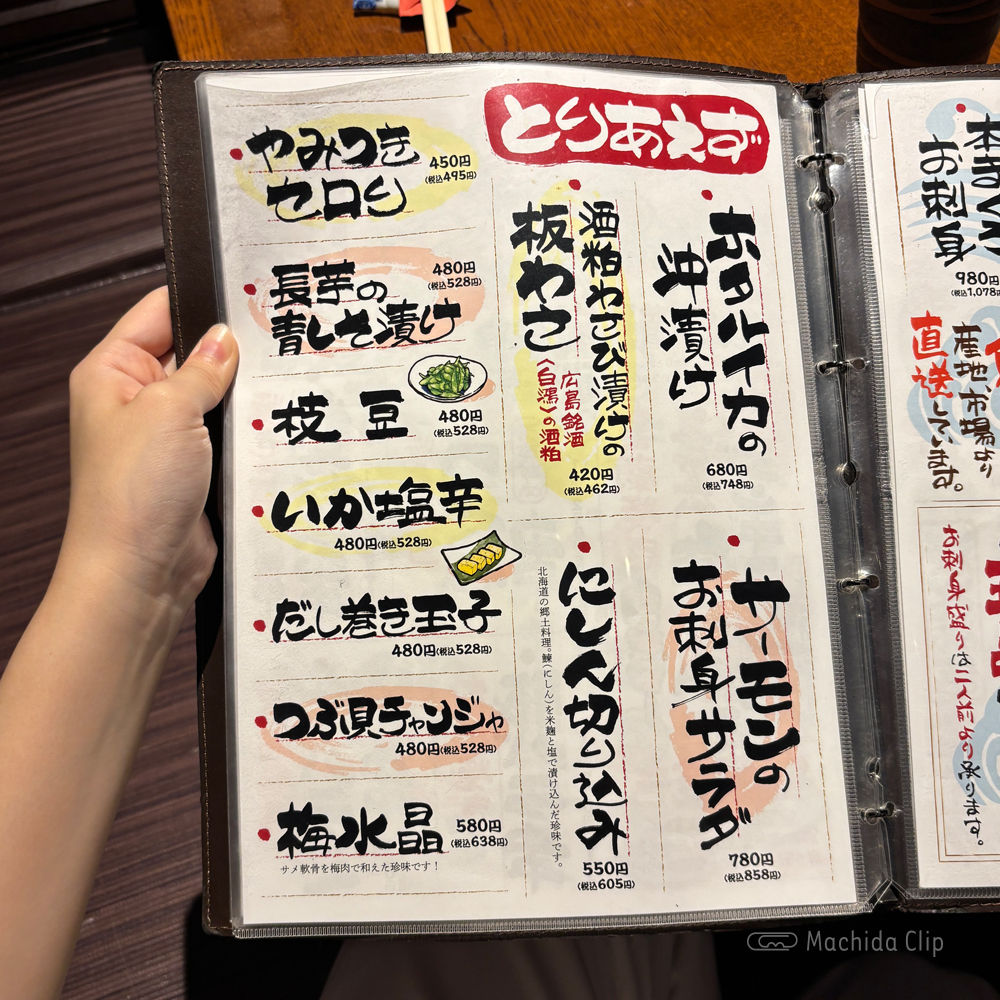 とりあえず
ホタルイカの
沖漬け
680円
(税込748円)
酒粕わさび漬けの
板わさ
広島銘酒
〈白鴻〉の酒粕
420円
(税込462円)
やみつき
セロリ
450円
(税込495円)
長芋の
青しそ漬け
480円
(税込528円)
枝豆
480円
(税込528円)
いか塩辛
480円(税込528円)
だし巻き玉子
480円(税込528円)
つぶ貝チャンジャ
480円(税込528円)
梅水晶
580円
(税込638円)
サメ軟骨を梅肉で和えた珍味です!
サーモンの
お刺身サラダ
780円
(税込858円)
にしん切り込み
北海道の郷土料理。鰊(にしん)を米麹と塩で漬け込んだ珍味です。
550円
(税込605円)
お刺身
980円
(税込1,078円
産地、市場より
直送しています。
お刺身盛りは二人前より承ります。
Machida Clip